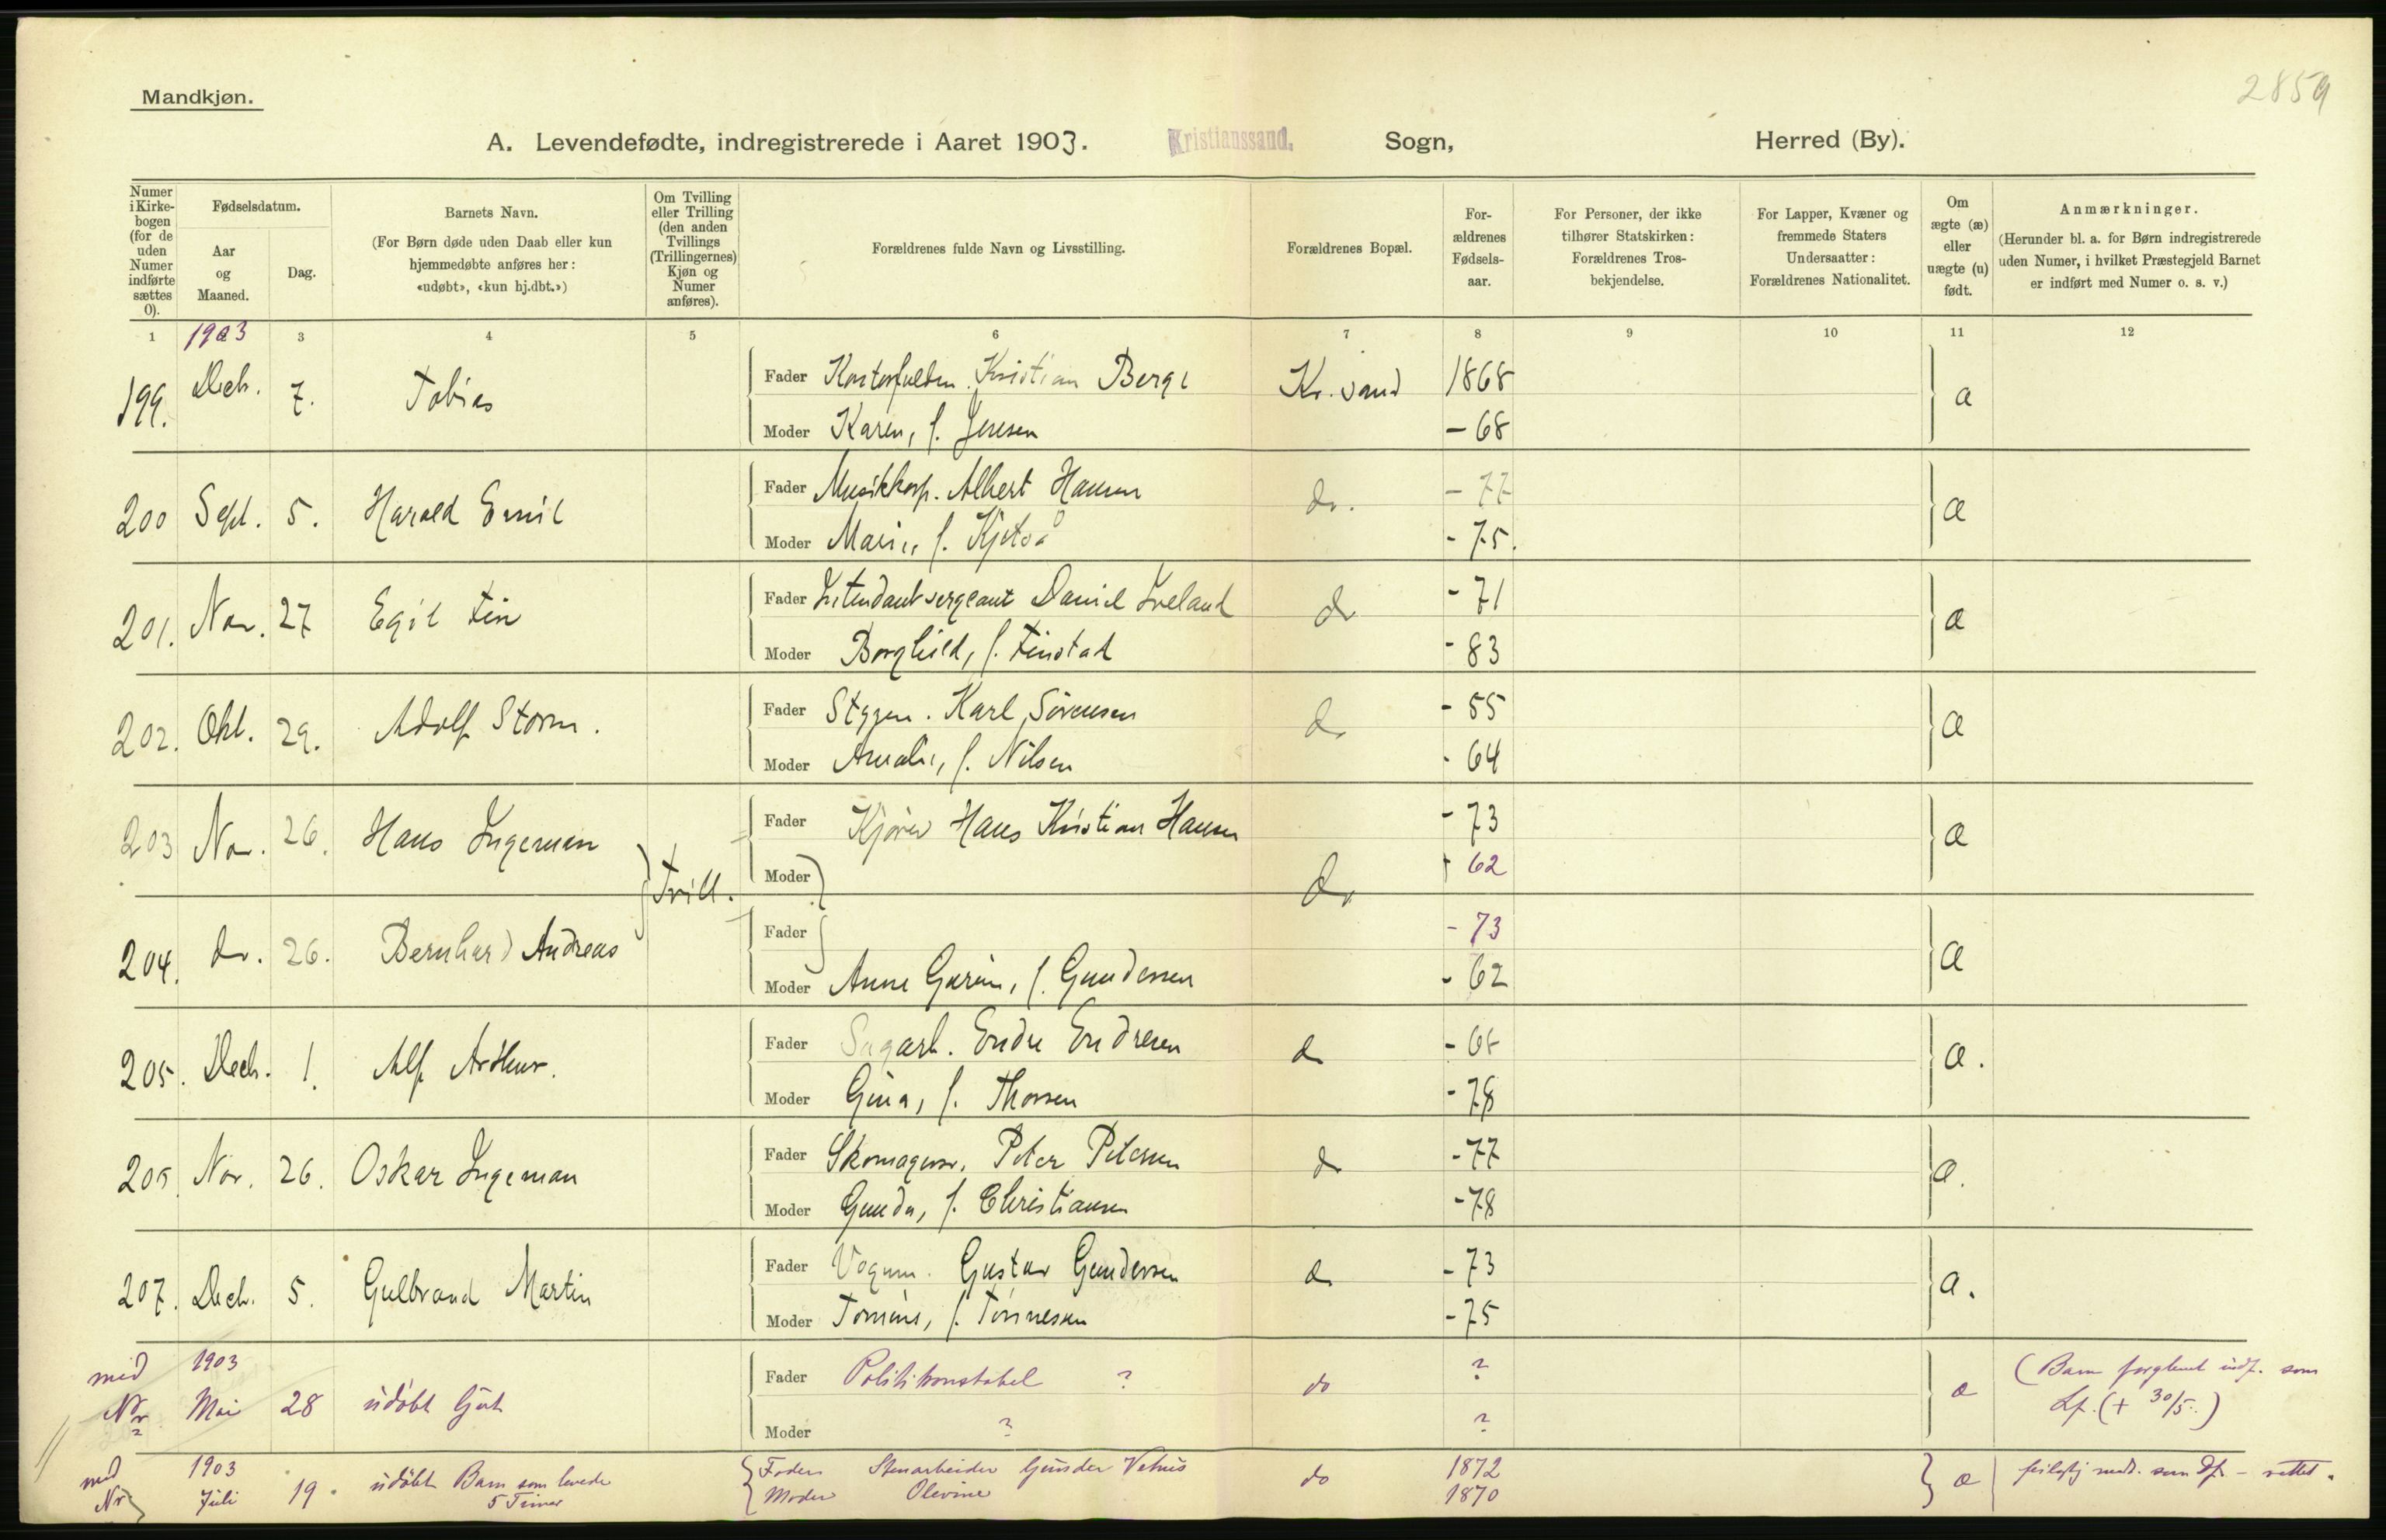 2859
Mandkjøn.
A. Levendefødte, indregistrerede i Aaret 1903. Kristianssand. Sogn, Herred (By).
Numer i Kirke-bogen (for de uden Numer indførte sættes 0).
Fødselsdatum.
Aar og Maaned.
Dag.
Barnets Navn.
(For Børn døde uden Daab eller kun hjemmedøbte anføres her: «udøbt», «kun hj.dbt.»)
Om Tvilling eller Trilling (den anden Tvillings (Trillingernes) Kjøn og Numer anføres).
Forældrenes fulde Navn og Livsstilling.
Forældrenes Bopæl.
For-ældrenes Fødsels-aar.
For Personer, der ikke tilhører Statskirken: Forældrenes Tros-bekjendelse.
For Lapper, Kvæner og fremmede Staters Undersaatter: Forældrenes Nationalitet.
Om ægte (æ) eller uægte (u) født.
Anmærkninger.
(Herunder bl. a. for Børn indregistrerede uden Numer, i hvilket Præstegjeld Barnet er indført med Numer o. s. v.)
1 1903 3 4 5 6 7 8 9 10 11 12
199. Dech. 7. Tobias Fader Kristian Berge Kr.sand 1868 æ
Moder Karen, f. Jensen - 68
200 Sept. 5. Harald Emil Fader Albert Hansen do. - 77 æ
Moder Marie, f. - 75.
201. Nov. 27 Egil Fin Fader Intendantsergeant Daniel Iveland do - 71 æ
Moder Borghild, f. Finstad - 83
202. Okt. 29. Adolf Storm. Fader Karl Sørensen do - 55 æ
Moder Amalie, f. Nilsen - 64
203 Nov. 26. Hans Ingeman Tvill. Fader Kjører Hans Kristian Hansen do - 73 æ
Moder 62
204. do. 26. Bernhard Andreas Fader - 73 æ
Moder Anne Gurine, f. Gundersen - 62
205. Dech. 1. Alf Arthur. Fader Sagarb. Endre Endresen do æ.
Moder Gina, f. Thorsen - 78
Nov. 26. Oskar Ingeman Fader Skomagersv. Peter Petersen do - 77 æ.
Moder Gunda, f. Christiansen - 78
207. Dech. 5. Gulbrand Martin Fader Vognm. Gustav Gundersen do - 73 æ.
Moder Tomine, f. Tønnesen - 75
1903
Nr Mai 28 udøbt Gut Fader Politikonstabel ? do ? æ (Barn forglemt indf. som
? Moder ? ? Lf. (+ 30/5.)
1903
Nr Juli 19. udøbt Barn som levede Fader Stenarbeider Gunder do 1872 æ
5 Timer Moder Olevine 1870